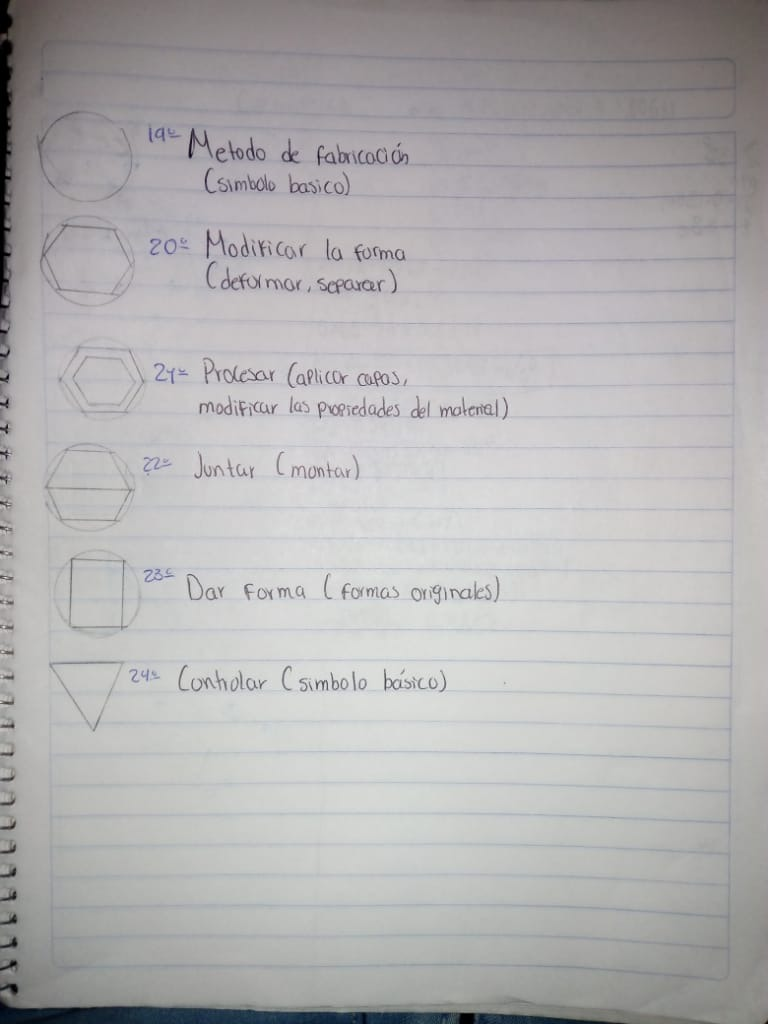 19º Metodo de fabricación
(simbolo basico)
20º Modificar la forma
(deformar, separar)
21º Procesar (aplicar capas,
modificar las propiedades del material)
22º Juntar (montar)
23º Dar forma (formas originales)
24º Controlar (simbolo básico)